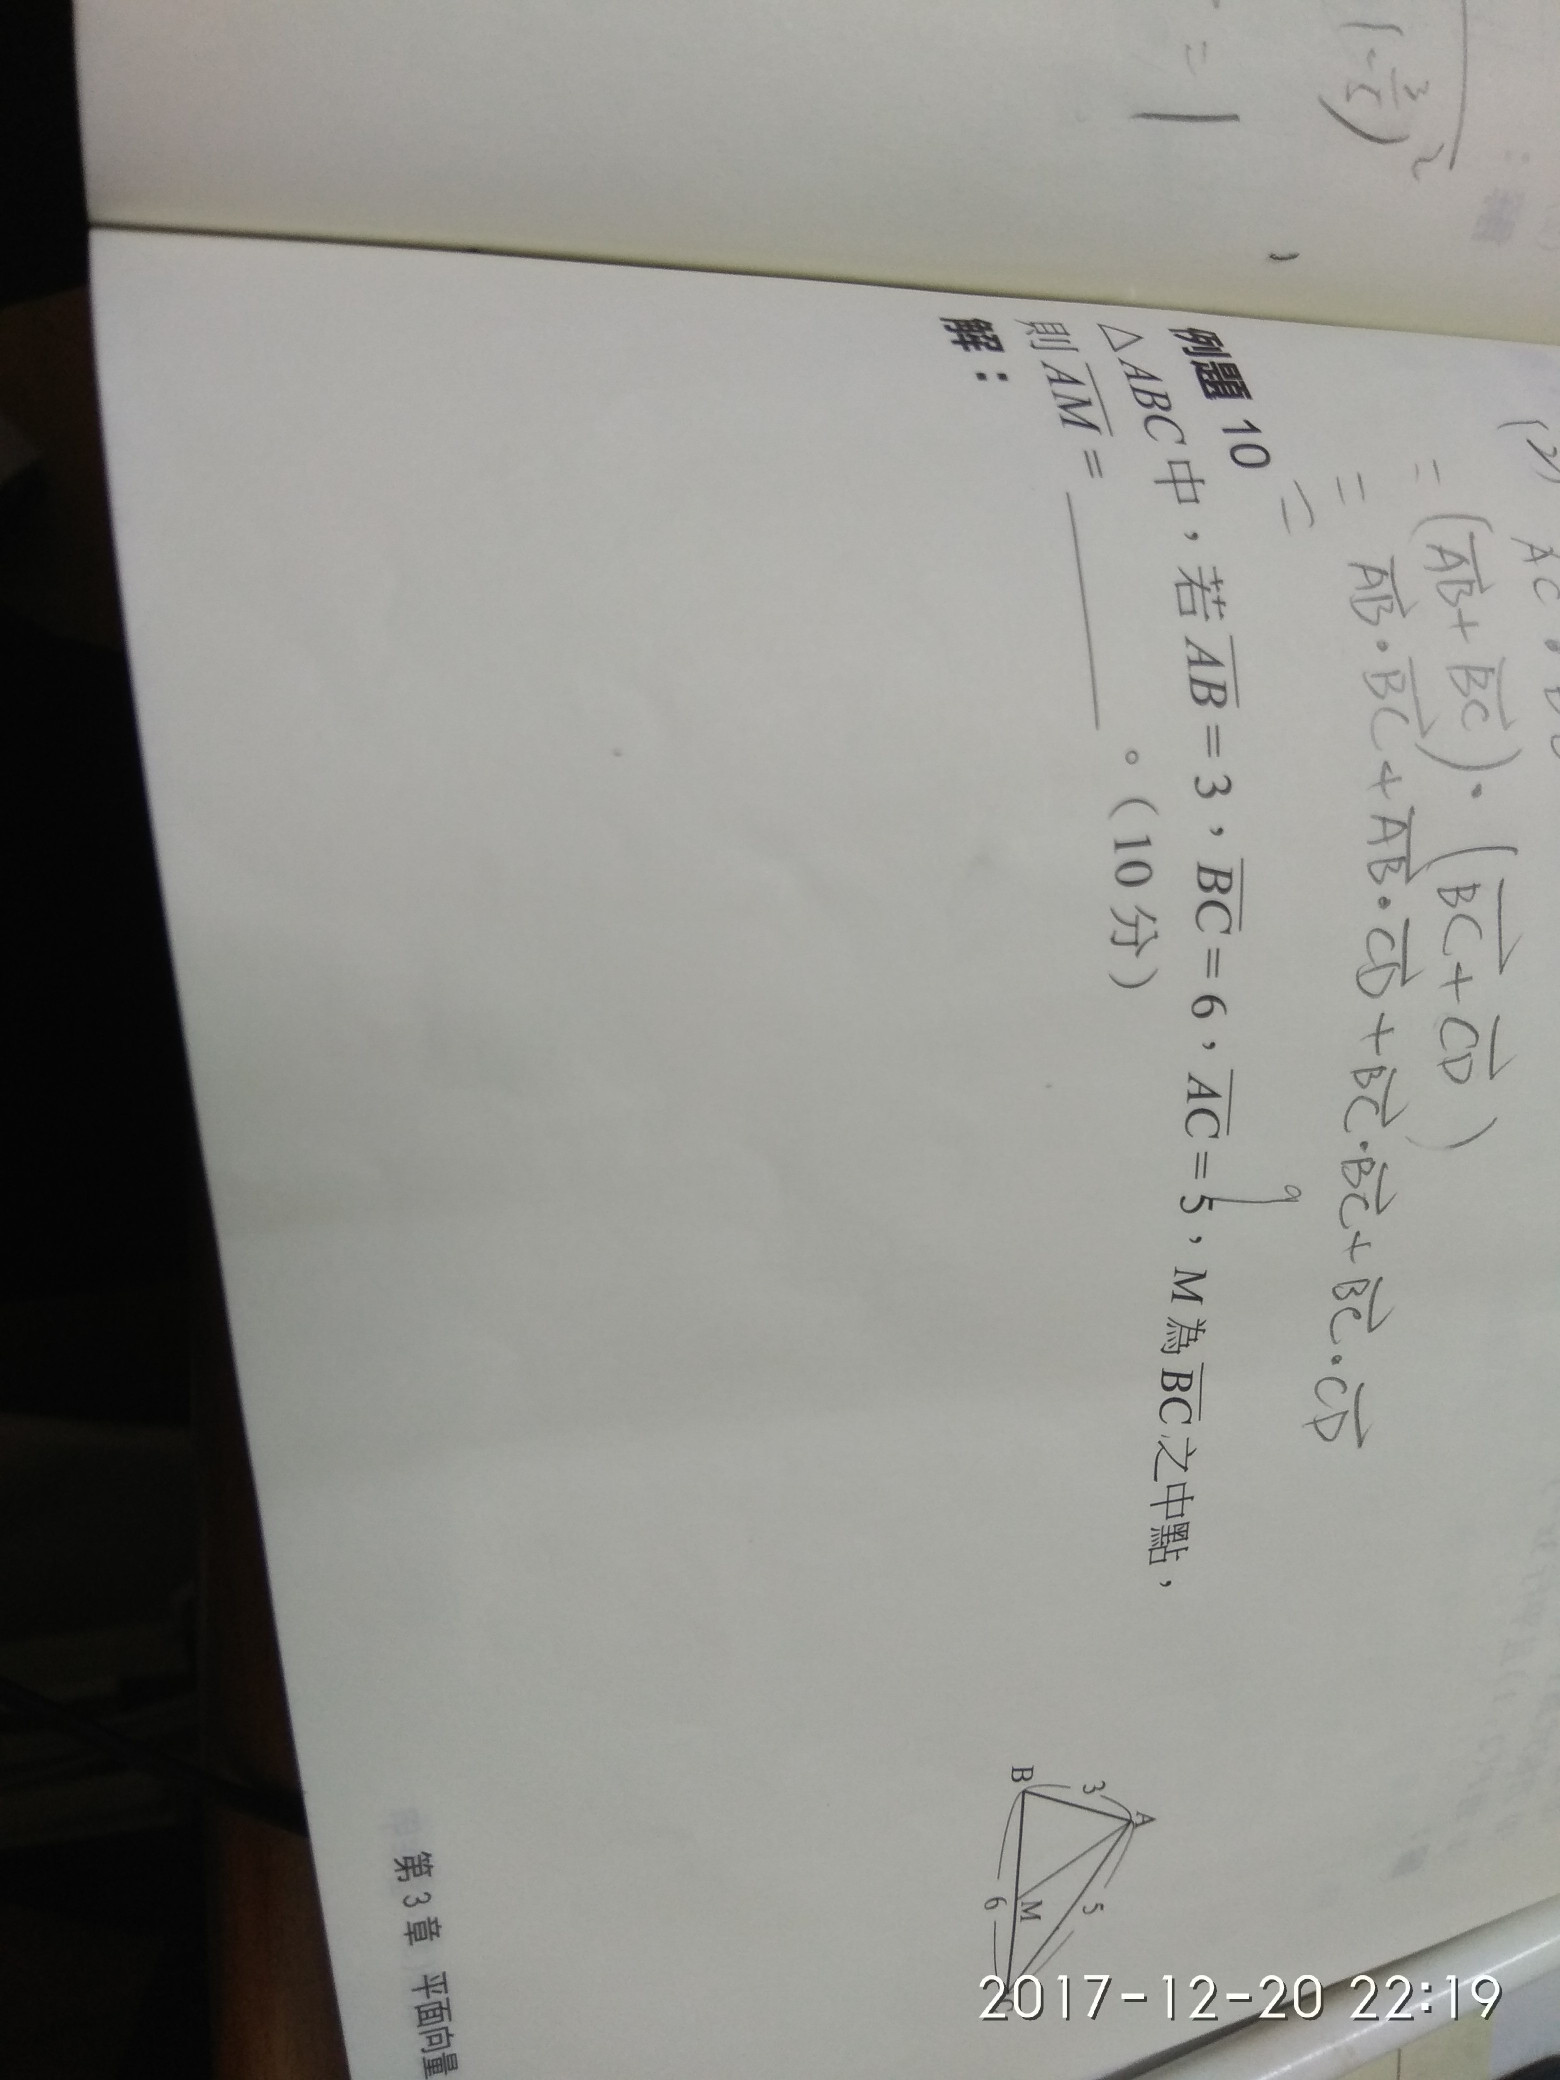 (-3/5)²
= 1
(2) AC · BD
= (AB + BC) · (BC + CD)
= AB · BC + AB · CD + BC · BC + BC · CD
=
例題 10
△ABC 中，若 AB = 3，BC = 6，AC = 5，M 為 BC 之中點，
則 AM = ________。（10 分）
解：
A
3
5
B
M
6
第 3 章 平面向量
2017-12-20 22:19